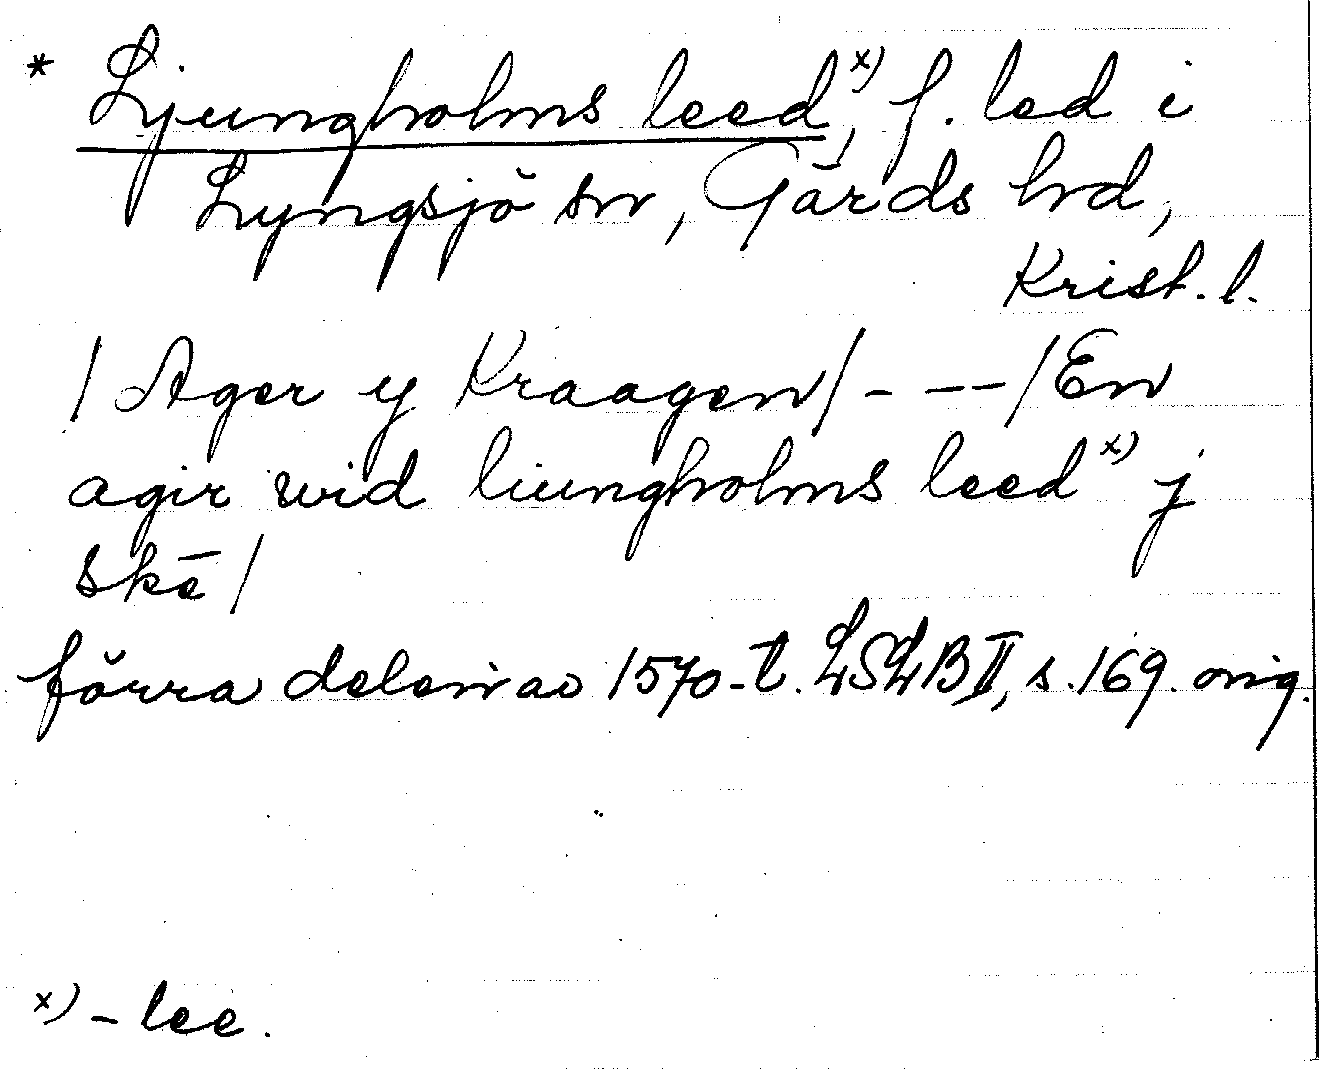 * Ljungholms leed x), f. led i
Lyngsjö sn, Gärds hd,
Krist. l.
/ Ager y Kraagen / - -- / En
agir wid liungholms leed x) j
skē /
förra delen av 1570-t. LSLB II, s. 169. orig.
x) - lee.